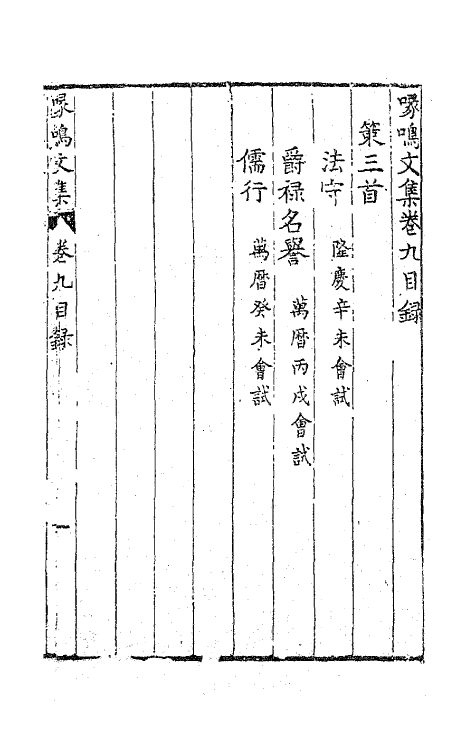 喙鳴文集卷九目録
策三首
法守 隆慶辛未會試
爵禄名譽 萬曆丙戌會試
儒行 萬曆癸未會試
喙鳴文集 卷九目録 一